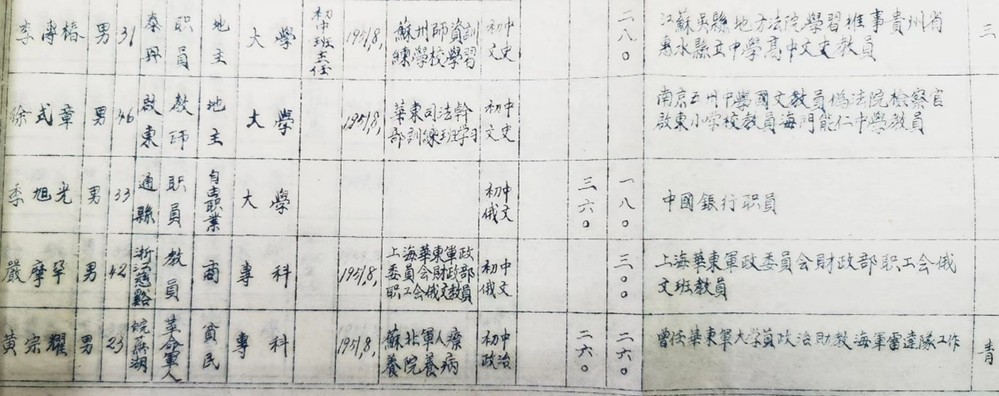 李 男 31 泰興 职員 地主 大學 初中班主任 1951,8, 蘇州師資訓練學校學習 初中文史 二八〇 江蘇吳縣地方法院學習推事貴州省惠水縣立中學高中文史教員 三
徐式章 男 46 啟東 教師 地主 大學 1951,8, 華東司法幹部訓練班学习 初中文史 南京五州中學國文教員偽法院檢察官啟東小学校教員海門能仁中學教員
季旭光 男 33 通縣 职員 自由職業 大學 初中俄文 三六〇 一八〇 中國銀行职員
嚴摩罕 男 42 浙江慈谿 教員 商 專科 1951,8, 上海華東軍政委員会財政部职工会俄文教員 初中俄文 三〇〇 上海華東軍政委員会財政部职工会俄文班教員
黃宗耀 男 23 皖蕪湖 革命軍人 貧民 專科 1951,8, 蘇北軍人療養院養病 初中政治 二六〇 二六〇 曾任華東軍大學員政治助教海軍雷達隊工作 青